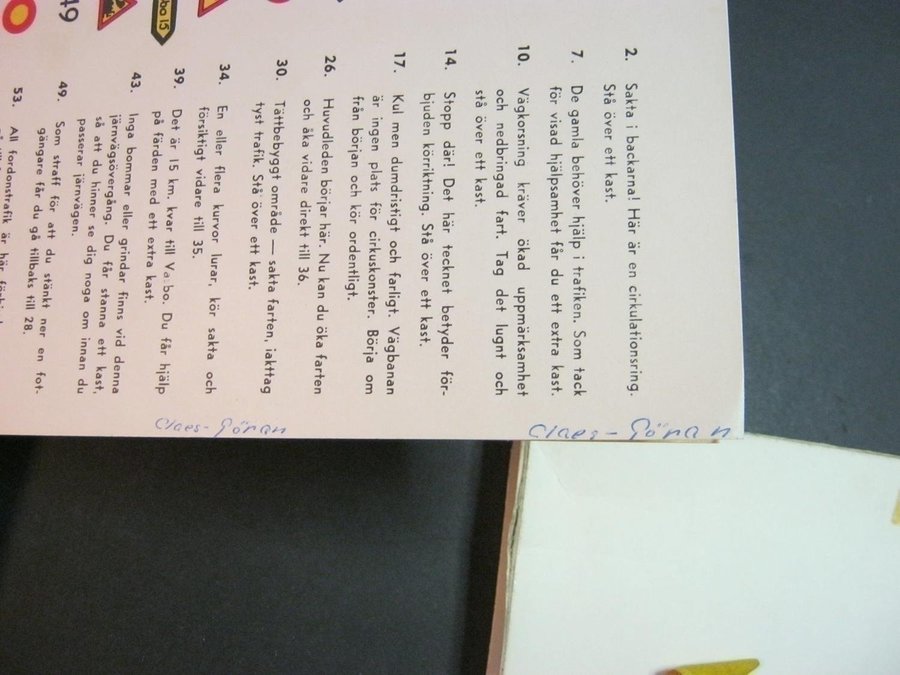 2. Sakta i backarna! Här är en cirkulationsring.
Stå över ett kast.
7. De gamla behöver hjälp i trafiken. Som tack
för visad hjälpsamhet får du ett extra kast.
10. Vägkorsning kräver ökad uppmärksamhet
och nedbringad fart. Tag det lugnt och
stå över ett kast.
14. Stopp där! Det här tecknet betyder för-
bjuden körriktning. Stå över ett kast.
17. Kul men dumdristigt och farligt. Vägbanan
är ingen plats för cirkuskonster. Börja om
från början och kör ordentligt.
26. Huvudleden börjar här. Nu kan du öka farten
och åka vidare direkt till 36.
30. Tättbebyggt område — sakta farten, iakttag
tyst trafik. Stå över ett kast.
34. En eller flera kurvor lurar, kör sakta och
försiktigt vidare till 35.
39. Det är 15 km kvar till bo. Du får hjälp
på färden med ett extra kast.
43. Inga bommar eller grindar finns vid denna
järnvägsövergång. Du får stanna ett kast,
så att du hinner se dig noga om innan du
passerar järnvägen.
49. Som straff för att du stänkt ner en fot-
gängare får du gå tillbaks till 28.
53. All fordonstrafik är här
bo 15
49
Claes-Göran
Claes-Göran